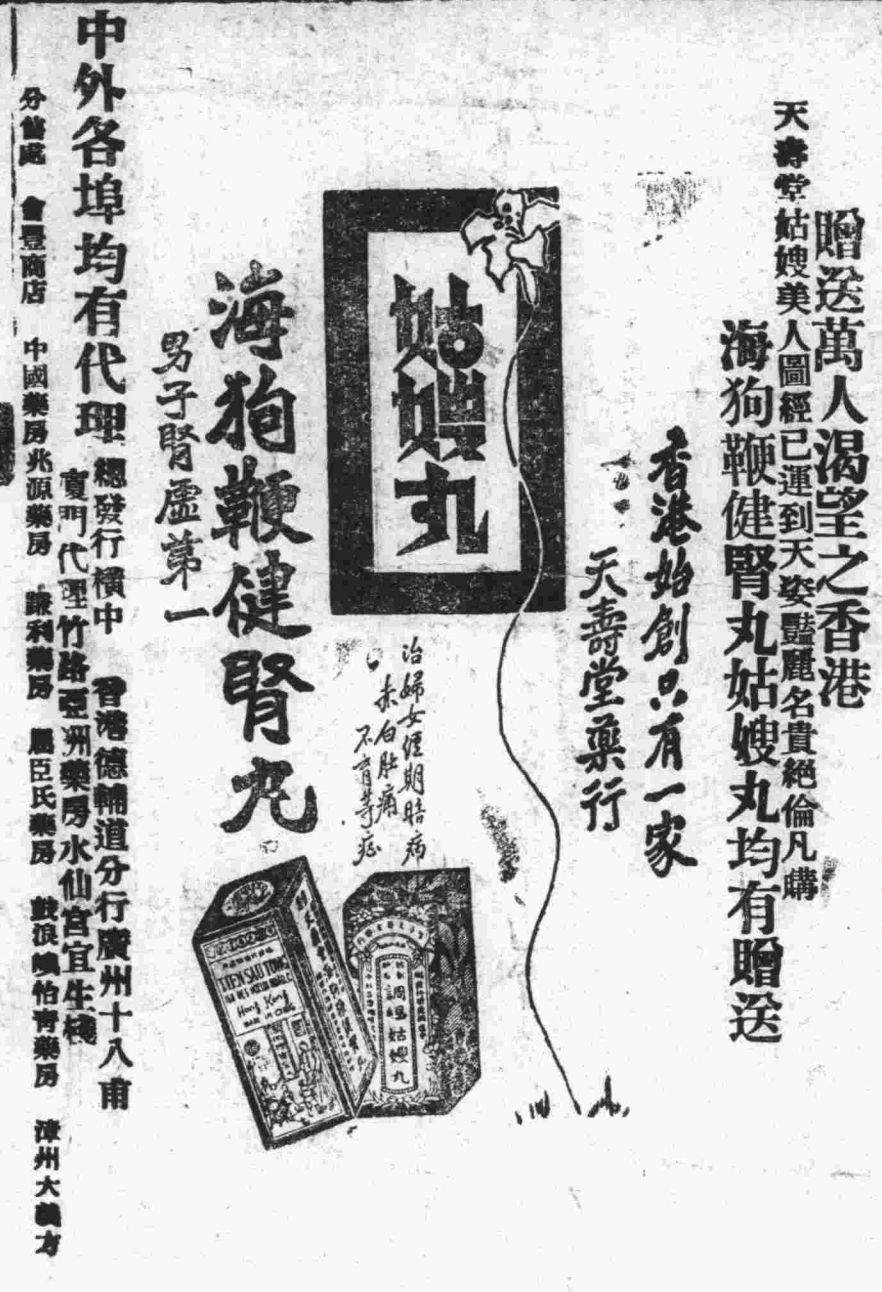 贈送萬人渴望之香港
天壽堂姑嫂美人圖經已運到天姿豔麗名貴絕倫凡購
海狗鞭健腎丸姑嫂丸均有贈送
香港始創只有一家
天壽堂藥行
姑嫂丸
治婦女經期暗病
赤白肚痛
不育等症
海狗鞭健腎丸
男子腎虛第一
TIEN SAU TONG
Hong Kong
調經姑嫂丸
中外各埠均有代理
總發行橫中 香港德輔道分行廣州十八甫
廈門代理竹路亞洲藥房水仙宮宜生棧
分售處 會豐商店 中國藥房兆源藥房 謙利藥房 屈臣氏藥房 鼓浪嶼怡青藥房 漳州大